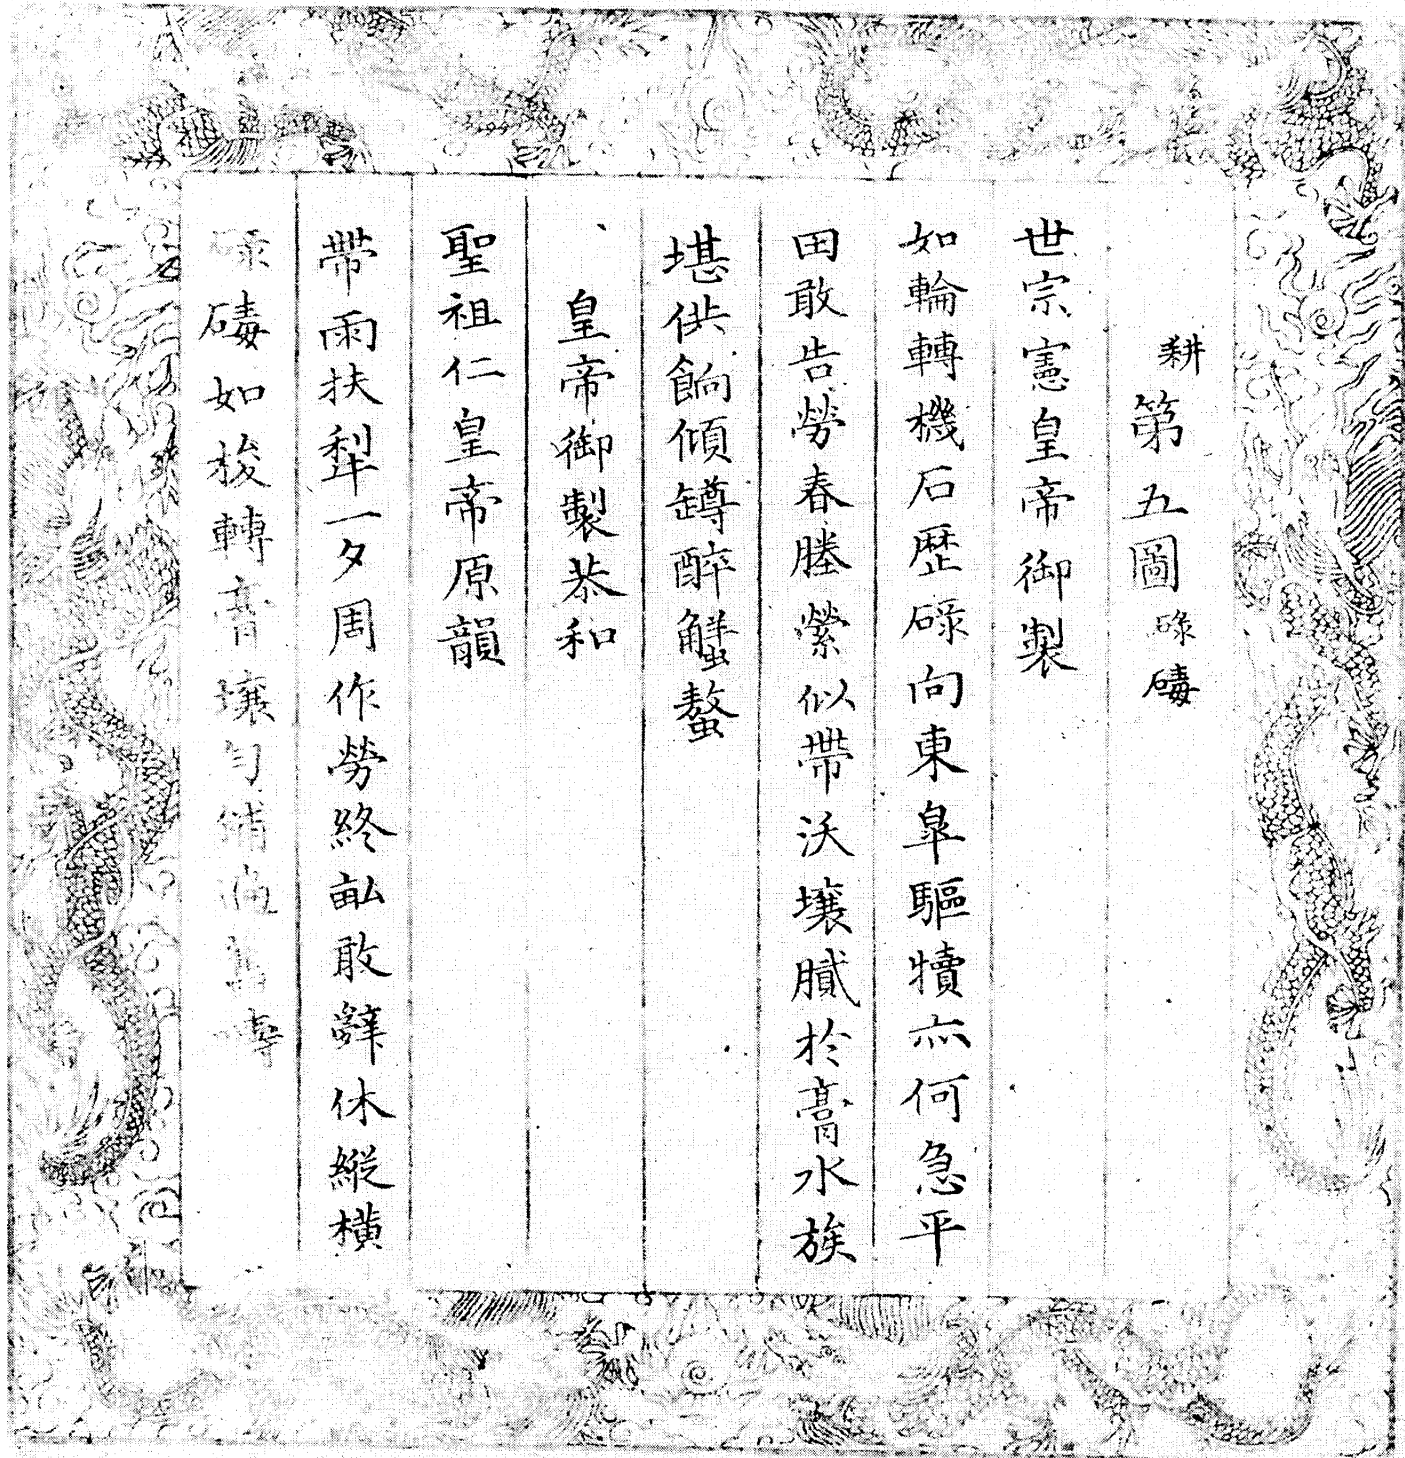 耕第五圖碌碡
世宗憲皇帝御製
如輪轉機石歷碌向東皐驅犢亦何急平
田敢告勞春塍縈似帶沃壤膩於膏水族
堪供餉傾罇醉蟹螯
皇帝御製恭和
聖祖仁皇帝原韻
帶雨扶犁一夕周作勞終畝敢辭休縱橫
碌碡如梭轉膏壤勻鋪